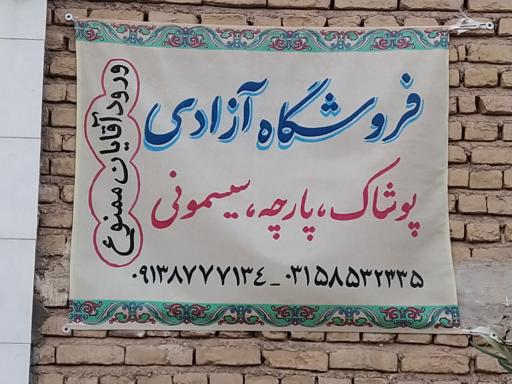 فروشگاه آزادی
پوشاک، پارچه، سیسمونی
۰۳۱۵۸۵۳۲۳۳۵ - ۰۹۱۳۸۷۷۷۱۳۴
ورود آقایان ممنوع